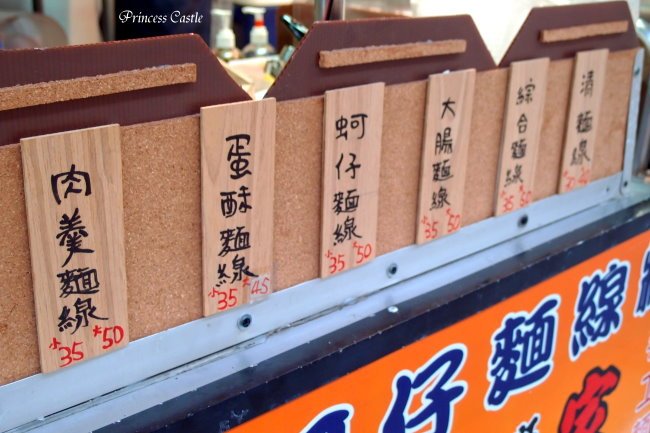 Princess Castle
肉羹麵線
小35 大50
蛋酥麵線
小35 大45
蚵仔麵線
小35 大50
大腸麵線
小35 大50
綜合麵線
35 50
清麵線
30 35
仔麵線